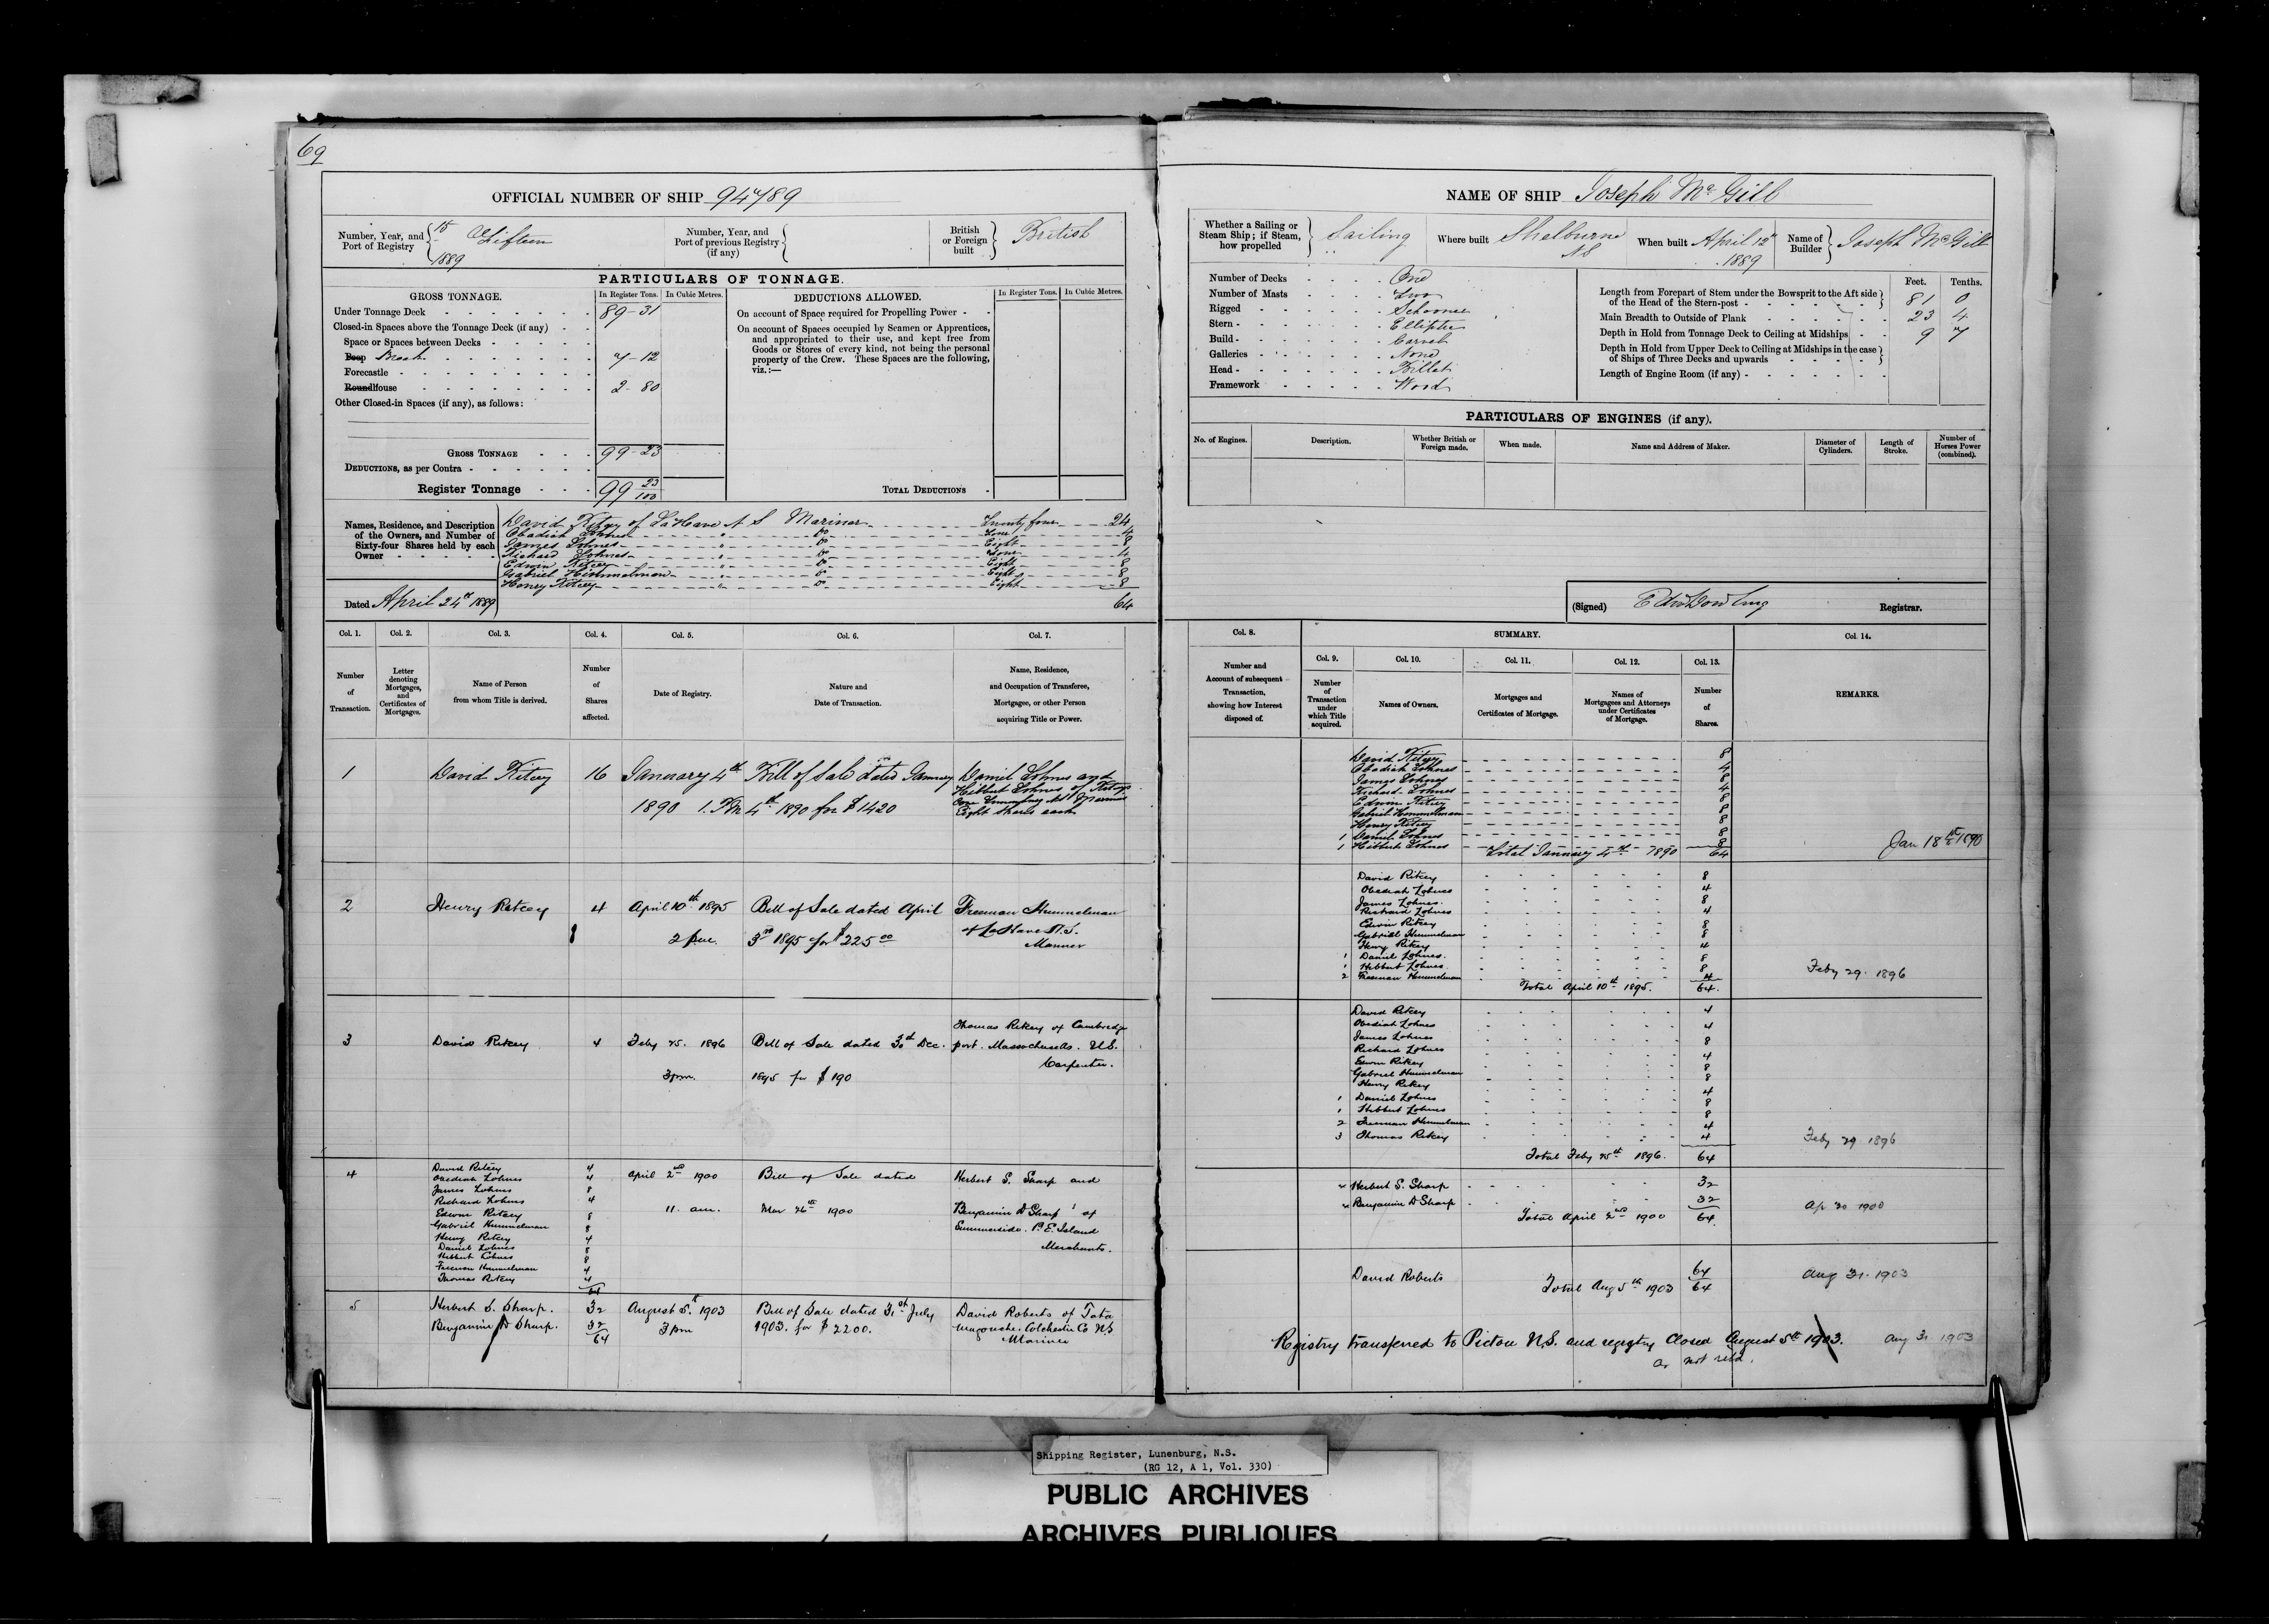 69
OFFICIAL NUMBER OF SHIP 94789
Number, Year, and Port of Registry 15 Fifteen 1889
Number, Year, and Port of previous Registry (if any)
British or Foreign built British
PARTICULARS OF TONNAGE.
GROSS TONNAGE. In Register Tons. In Cubic Metres.
Under Tonnage Deck 89-31
Closed-in Spaces above the Tonnage Deck (if any)
Space or Spaces between Decks
Poop Break 7-12
Forecastle
Roundhouse 2-80
Other Closed-in Spaces (if any), as follows:
GROSS TONNAGE 99-23
DEDUCTIONS, as per Contra
Register Tonnage 99 23/100
DEDUCTIONS ALLOWED. In Register Tons. In Cubic Metres.
On account of Space required for Propelling Power
On account of Spaces occupied by Seamen or Apprentices,
and appropriated to their use, and kept free from
Goods or Stores of every kind, not being the personal
property of the Crew. These Spaces are the following,
viz.:—
TOTAL DEDUCTIONS
Names, Residence, and Description
of the Owners, and Number of
Sixty-four Shares held by each
Owner
David Ritcey of LaHave N S Mariner Twenty four 24
Obadiah Lohnes " Do Four 4
James Lohnes " Do Eight 8
Richard Lohnes " Do Four 4
Edwin Ritcey " Do Eight 8
Gabriel Himmelman " Do Eight 8
Henry Ritcey " Do Eight 8
64
Dated April 24th 1889
Col. 1. Col. 2. Col. 3. Col. 4. Col. 5. Col. 6. Col. 7.
Number of Transaction.
Letter denoting Mortgages, and Certificates of Mortgages.
Name of Person from whom Title is derived.
Number of Shares affected.
Date of Registry.
Nature and Date of Transaction.
Name, Residence, and Occupation of Transferee, Mortgagee, or other Person acquiring Title or Power.
1 David Ritcey 16 January 4th Bill of Sale dated January Daniel Lohnes and
Hibbert Lohnes of Ritcey
1890 1. PM 4th 1890 for $1420
Cove Lunenburg NS Mariners
Eight shares each
2 Henry Ritcey 4 April 10th 1895 Bill of Sale dated April Freeman Himmelman
2 p.m. 3rd 1895 for $225 00 of LaHave N.S.
Mariner
3 David Ritcey 4 Feby 25. 1896 Bill of Sale dated 31st Dec. Thomas Ritcey of Cambridge
port. Massachusetts. U.S.
3 pm. 1895 for $190 Carpenter.
4 David Ritcey 4 April 2nd 1900 Bill of Sale dated Herbert S. Sharp and
Obediah Lohnes 4
James Lohnes 8
Richard Lohnes 4
Edwin Ritcey 8 11. am. Mar 26th 1900 Benjamin A Sharp of
Gabriel Himmelman 8 Summerside. P.E. Island
Henry Ritcey 4
Daniel Lohnes 8 Merchants.
Hibbert Lohnes 8
Freeman Himmelman 4
Thomas Ritcey 4
64
5 Herbert S. Sharp. 32 August 5.th 1903 Bill of Sale dated 31st July David Roberts of Tata
Benjamin A Sharp. 32 3 pm 1903. for $2200. magouche. Colchester Co NS
64 Mariner
NAME OF SHIP Joseph McGill
Whether a Sailing or Steam Ship; if Steam, how propelled Sailing
Where built Shelburne NS
When built April 12th 1889
Name of Builder Joseph McGill
Number of Decks One
Number of Masts Two
Rigged Schooner
Stern Elliptic
Build Carvel
Galleries None
Head Billet
Framework Wood
Feet. Tenths.
Length from Forepart of Stem under the Bowsprit to the Aft side
of the Head of the Stern-post 81 0
Main Breadth to Outside of Plank 23 4
Depth in Hold from Tonnage Deck to Ceiling at Midships 9 7
Depth in Hold from Upper Deck to Ceiling at Midships in the case
of Ships of Three Decks and upwards
Length of Engine Room (if any)
PARTICULARS OF ENGINES (if any).
No. of Engines. Description. Whether British or Foreign made. When made. Name and Address of Maker. Diameter of Cylinders. Length of Stroke. Number of Horses Power (combined).
(Signed) Edw Dowling Registrar.
Col. 8. SUMMARY. Col. 14.
Col. 9. Col. 10. Col. 11. Col. 12. Col. 13.
Number and Account of subsequent Transaction, showing how Interest disposed of.
Number of Transaction under which Title acquired.
Names of Owners.
Mortgages and Certificates of Mortgage.
Names of Mortgagees and Attorneys under Certificates of Mortgage.
Number of Shares.
REMARKS.
David Ritcey 8
Obadiah Lohnes 4
James Lohnes 8
Richard Lohnes 4
Edwin Ritcey 8
Gabriel Himmelman 8
Henry Ritcey 8
1 Daniel Lohnes 8
1 Hibbert Lohnes 8
Total January 4th 1890 64
Jan 18th 1890
David Ritcey 8
Obediah Lohnes 4
James Lohnes. 8
Richard Lohnes 4
Edwin Ritcey 8
Gabriel Himmelman 8
Henry Ritcey 4
1 Daniel Lohnes. 8
1 Hibbert Lohnes. 8
2 Freeman Himmelman 4
Total April 10th 1895. 64.
Feby 29. 1896
David Ritcey 4
Obediah Lohnes 4
James Lohnes 8
Richard Lohnes 4
Edwin Ritcey 8
Gabriel Himmelman 8
Henry Ritcey 4
1 Daniel Lohnes 8
1 Hibbert Lohnes 8
2 Freeman Himmelman 4
3 Thomas Ritcey 4
Total Feby 25th 1896. 64
Feby 29 1896
4 Herbert S. Sharp 32
4 Benjamin A Sharp 32
Total April 2nd 1900 64.
Ap 30 1900
David Roberts 64
Total Aug 5th 1903 64
Aug 31. 1903
Registry transferred to Pictou N.S. and registry Closed August 5th 1903. Aug 31 1903
Shipping Register, Lunenburg, N.S.
(RG 12, A 1, Vol. 330)
PUBLIC ARCHIVES
ARCHIVES PUBLIQUES